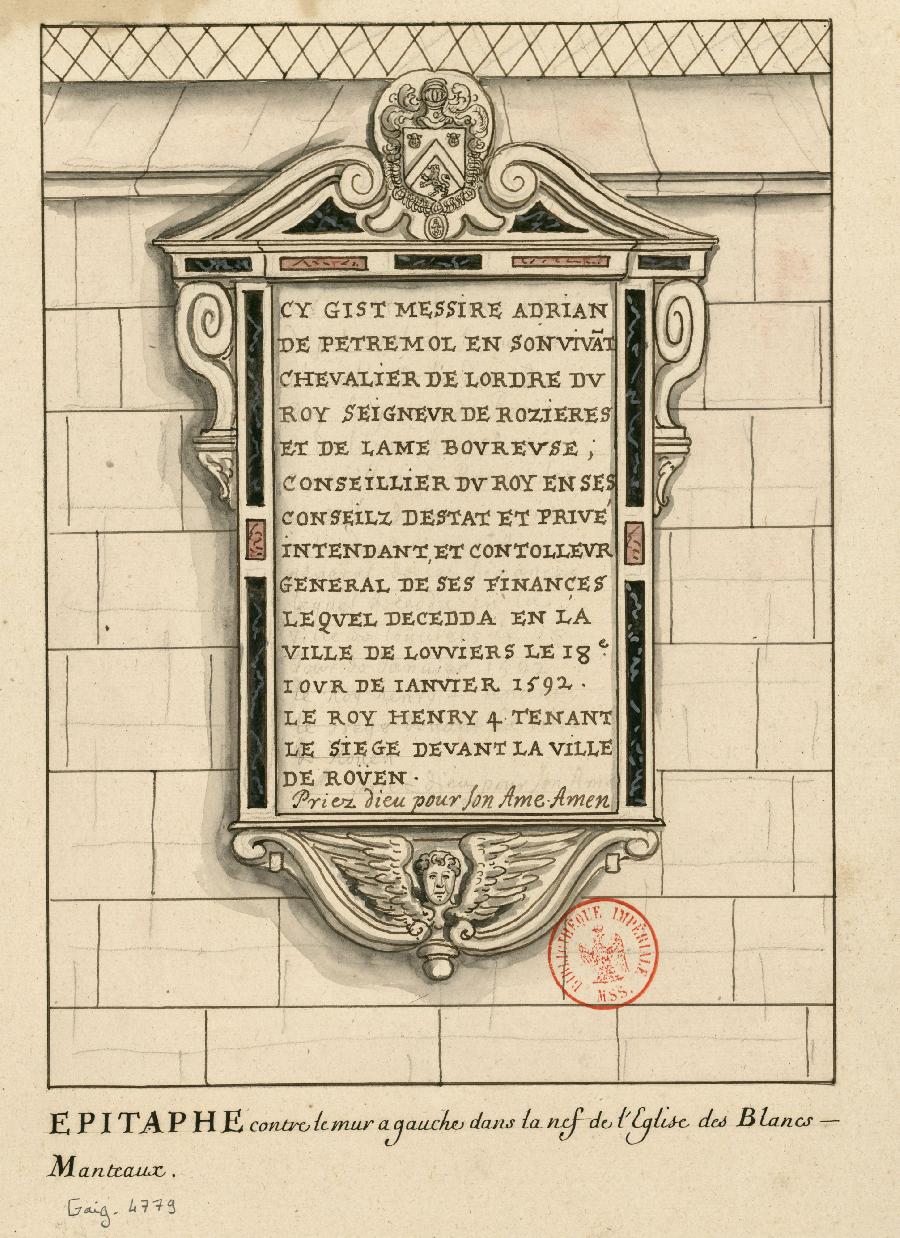 CY GIST MESSIRE ADRIAN
DE PETREMOL EN SON VIVÃT
CHEVALIER DE LORDRE DV
ROY SEIGNEVR DE ROZIERES
ET DE LAME BOVREVSE ;
CONSEILLIER DV ROY EN SES
CONSEILZ DESTAT ET PRIVÉ
INTENDANT, ET CONTOLLEVR
GENERAL DE SES FINANCES
LEQVEL DECEDDA EN LA
VILLE DE LOVVIERS LE 18e.
IOVR DE IANVIER 1592.
LE ROY HENRY 4 TENANT
LE SIEGE DEVANT LA VILLE
DE ROVEN.
Priez dieu pour son Ame. Amen
BIBLIOTHÈQUE IMPÉRIALE
MSS.
EPITAPHE contre le mur a gauche dans la nef de l'Eglise des Blancs —
Manteaux.
Gaig. 4779